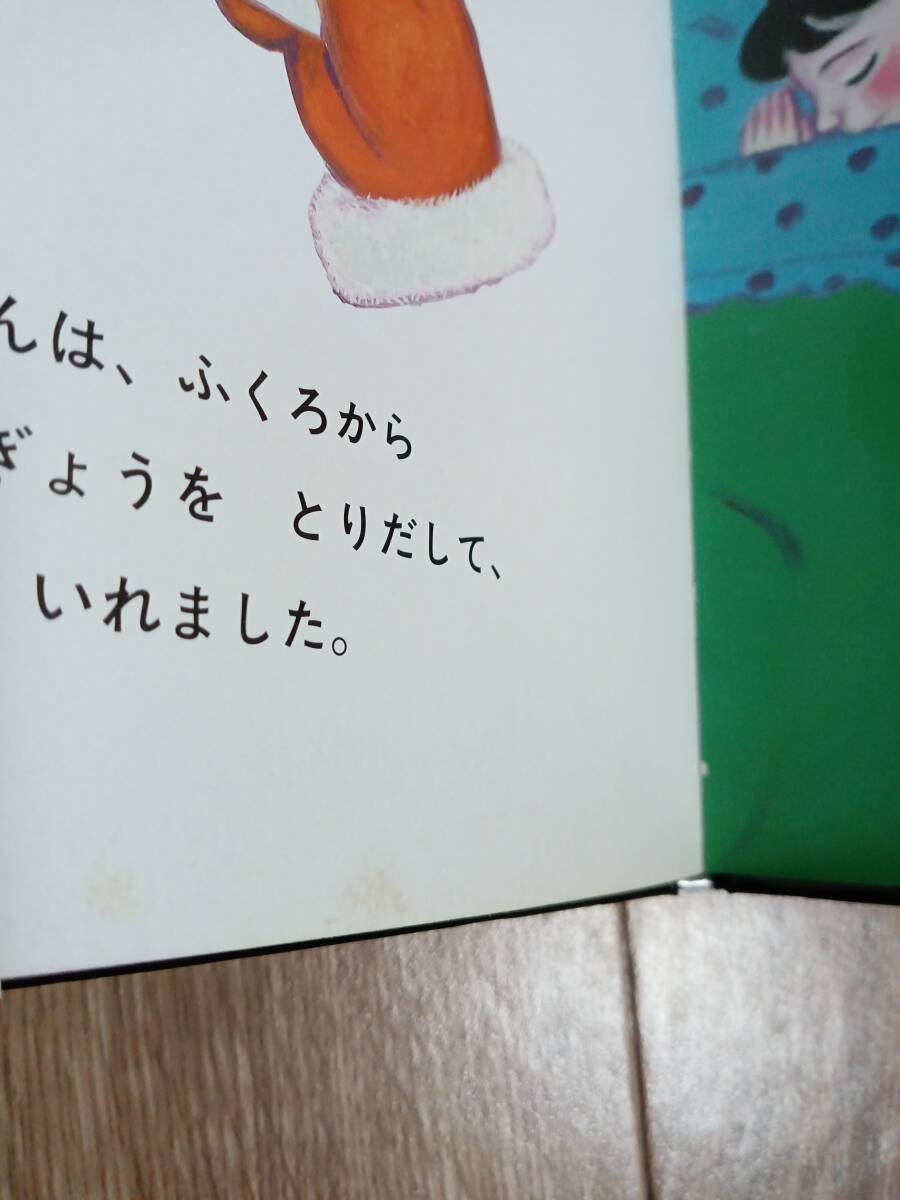 んは、ふくろから
ぎょうを とりだして、
いれました。